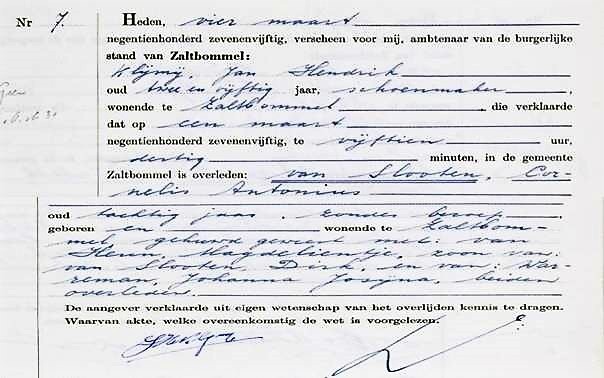 Nr 7.
Heden, vier maart
negentienhonderd zevenenvijftig, verscheen voor mij, ambtenaar van de burgerlijke
stand van Zaltbommel:
Klijmij, Jan Hendrik
oud twee en vijftig jaar, schoenmaker,
wonende te Zaltbommel, die verklaarde
dat op een maart
negentienhonderd zevenenvijftig, te vijftien uur,
dertig minuten, in de gemeente
Zaltbommel is overleden: van Slooten, Cor-
nelis Antonius
oud tachtig jaar, zonder beroep,
geboren en wonende te Zaltbom-
mel, gehuwd geweest met: van
Heun, Magdelientje, zoon van:
van Slooten, Dirk, en van:
reman, Johanna Josijna, beiden
overleden.
De aangever verklaarde uit eigen wetenschap van het overlijden kennis te dragen.
Waarvan akte, welke overeenkomstig de wet is voorgelezen.